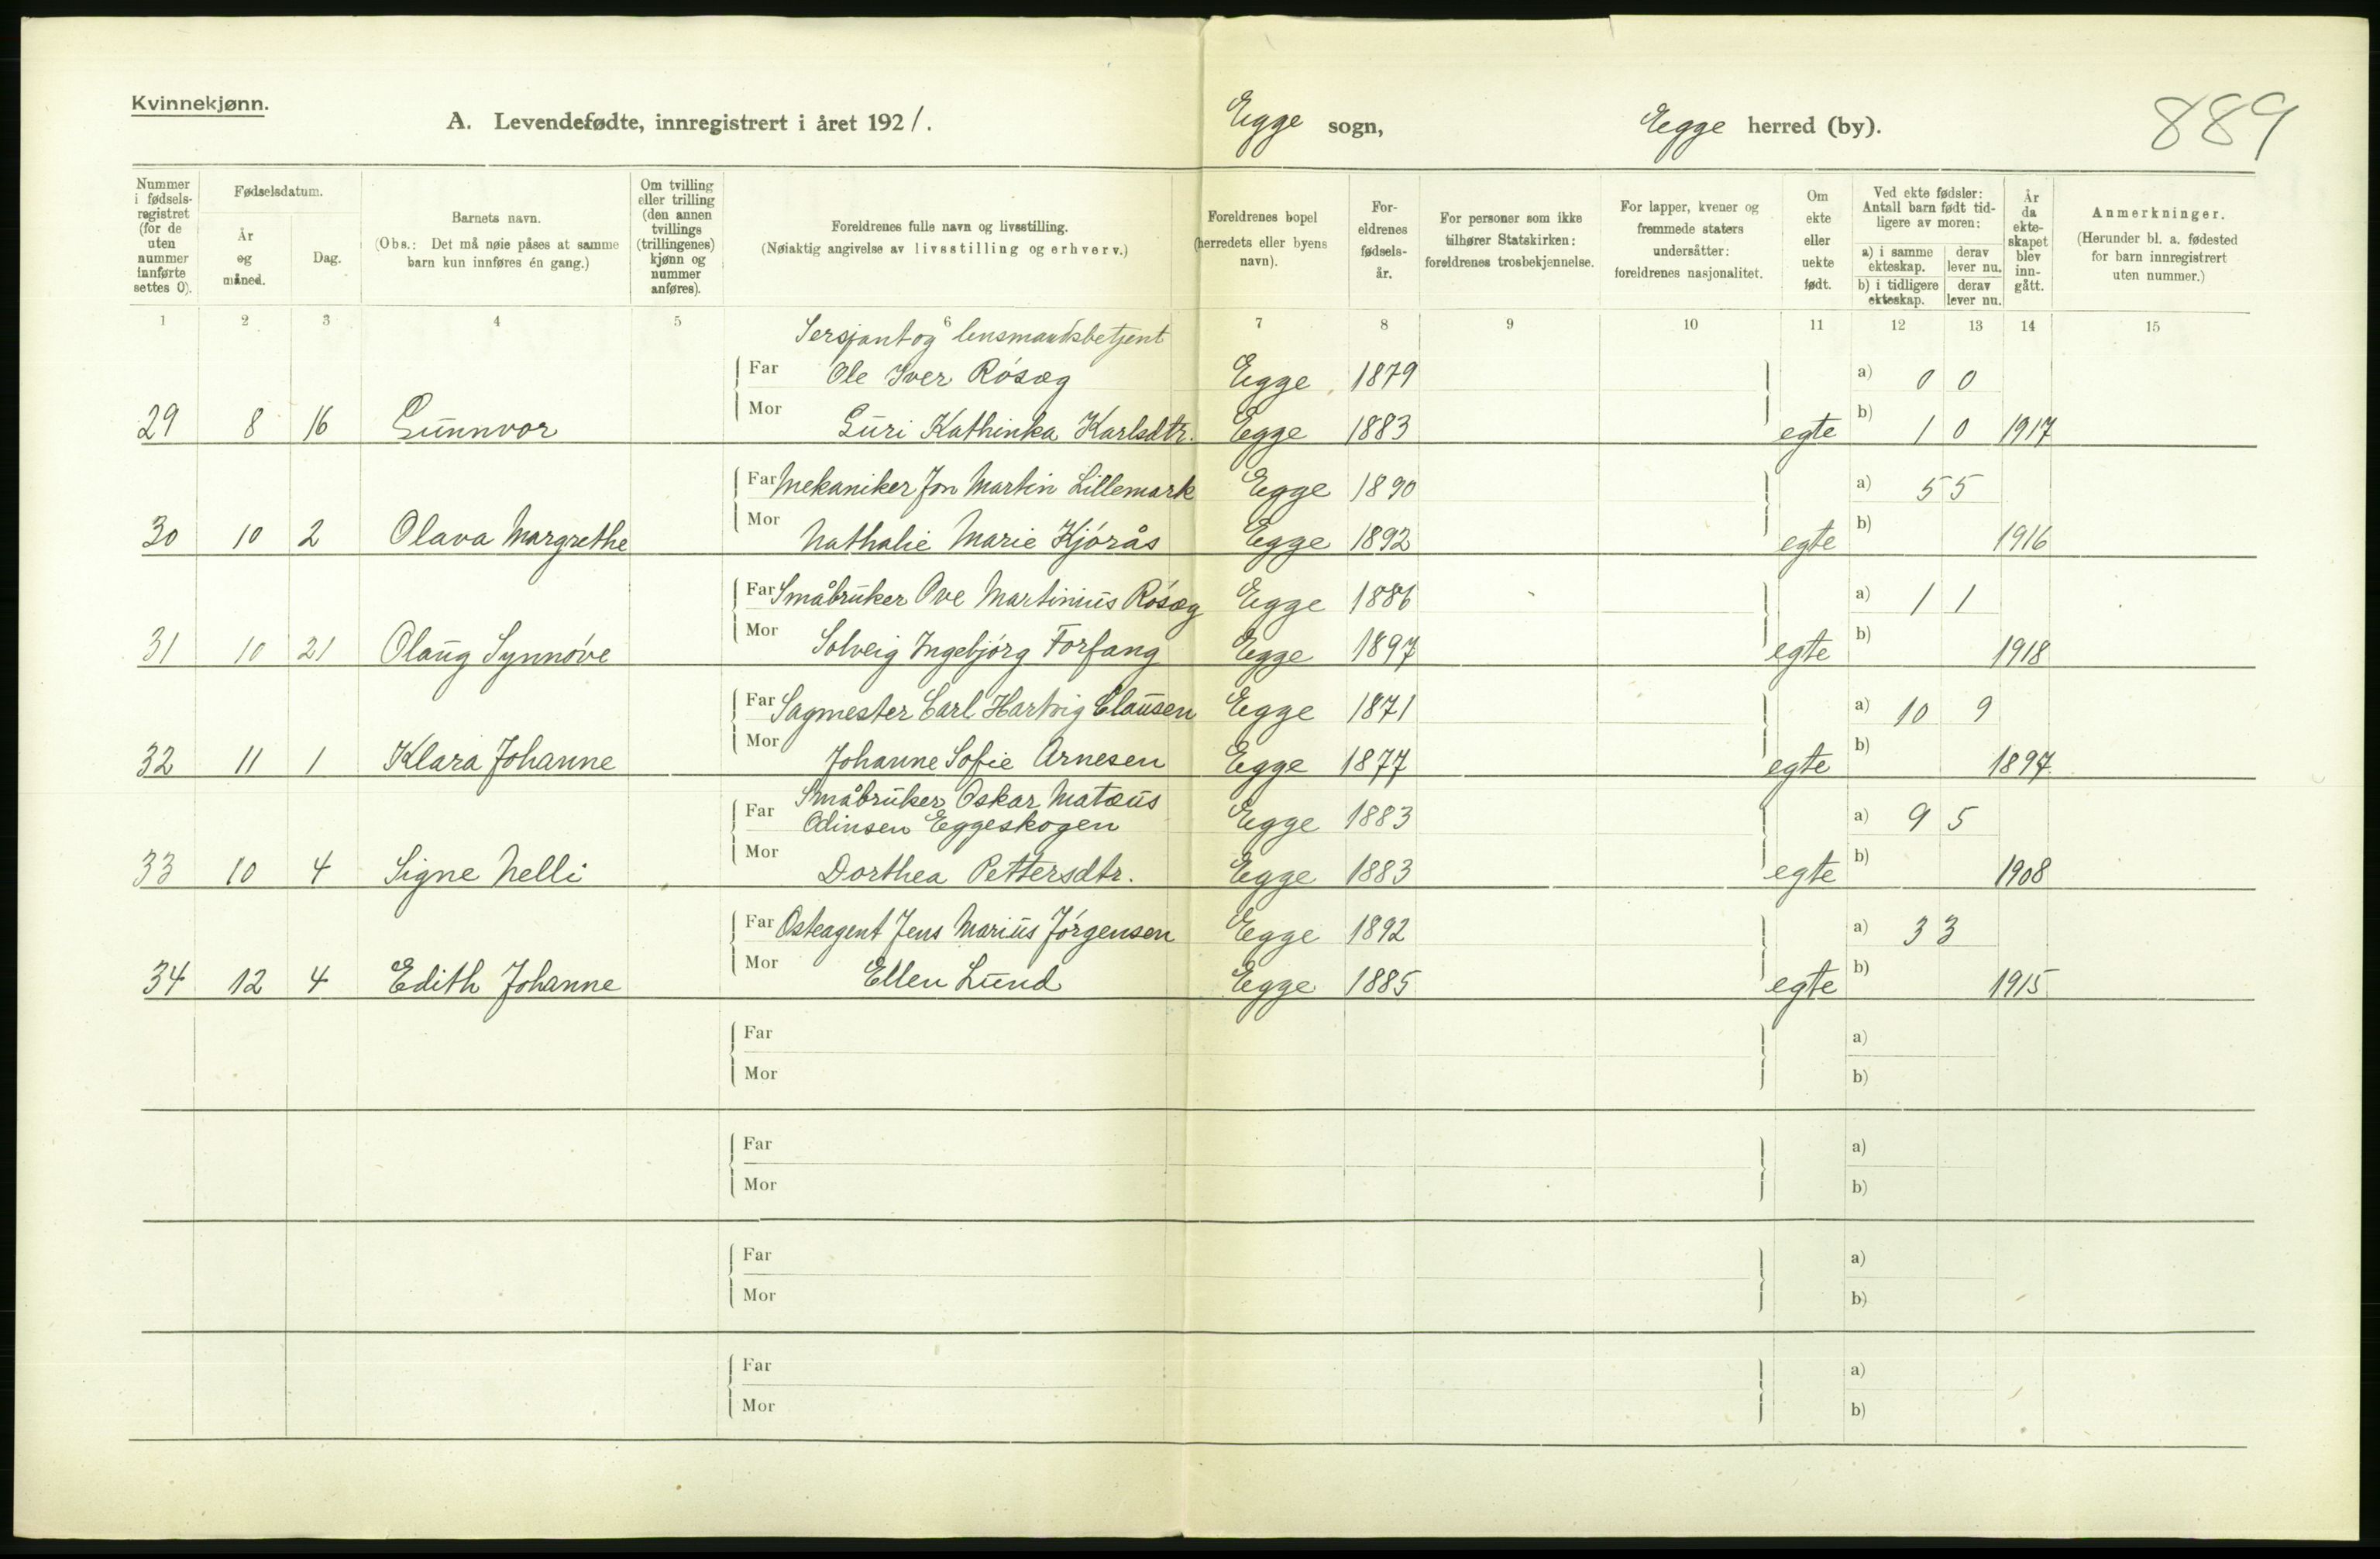 Kvinnekjønn.
A. Levendefødte, innregistrert i året 1921. Egge sogn, Egge herred (by). 889
Nummer i fødsels-registret (for de uten nummer innførte settes 0).
Fødselsdatum.
År og måned.
Dag.
Barnets navn.
(Obs.: Det må nøie påses at samme barn kun innføres én gang.)
Om tvilling eller trilling (den annen tvillings (trillingenes) kjønn og nummer anføres).
Foreldrenes fulle navn og livsstilling.
(Nøiaktig angivelse av livsstilling og erhverv.)
Foreldrenes bopel (herredets eller byens navn).
For-eldrenes fødsels-år.
For personer som ikke tilhører Statskirken: foreldrenes trosbekjennelse.
For lapper, kvener og fremmede staters undersåtter: foreldrenes nasjonalitet.
Om ekte eller uekte født.
Ved ekte fødsler: Antall barn født tid-ligere av moren:
a) i samme ekteskap. derav lever nu.
b) i tidligere ekteskap. derav lever nu.
År da ekte-skapet blev inn-gått.
Anmerkninger.
(Herunder bl. a. fødested for barn innregistrert uten nummer.)
1 2 3 4 5 6 7 8 9 10 11 12 13 14 15
Sersjant og lensmandsbetjent
Far Ole Iver Rósæg Egge 1879 a) 0 0
29 8 16 Gunnvor Mor Guri Kathinka Karlsdtr. Egge 1883 egte b) 1 0 1917
Far Mekaniker Jon Martin Lillemark Egge 1890 a) 5 5
30 10 2 Olava Margrethe Mor Nathalie Marie Kjórås Egge 1892 egte b) 1916
Far Småbruker Ove Martinius Rósæg Egge 1886 a) 1 1
31 10 21 Olaug Synnóve Mor Solveig Ingebjórg Forfang Egge 1897 egte b) 1918
Far Sagmester Carl Hartvig Clausen Egge 1871 a) 10 9
32 11 1 Klara Johanne Mor Johanne Sofie Arnesen Egge 1877 egte b) 1897
Småbruker Oskar Matæus
Far Odinsen Eggeskogen Egge 1883 a) 9 5
33 10 4 Signe Nelli Mor Dorthea Pettersdtr. Egge 1883 egte b) 1908
Far Osteagent Jens Marius Jórgensen Egge 1892 a) 3 3
34 12 4 Edith Johanne Mor Ellen Lund Egge 1885 egte b) 1915
Far a)
Mor b)
Far a)
Mor b)
Far a)
Mor b)
Far a)
Mor b)